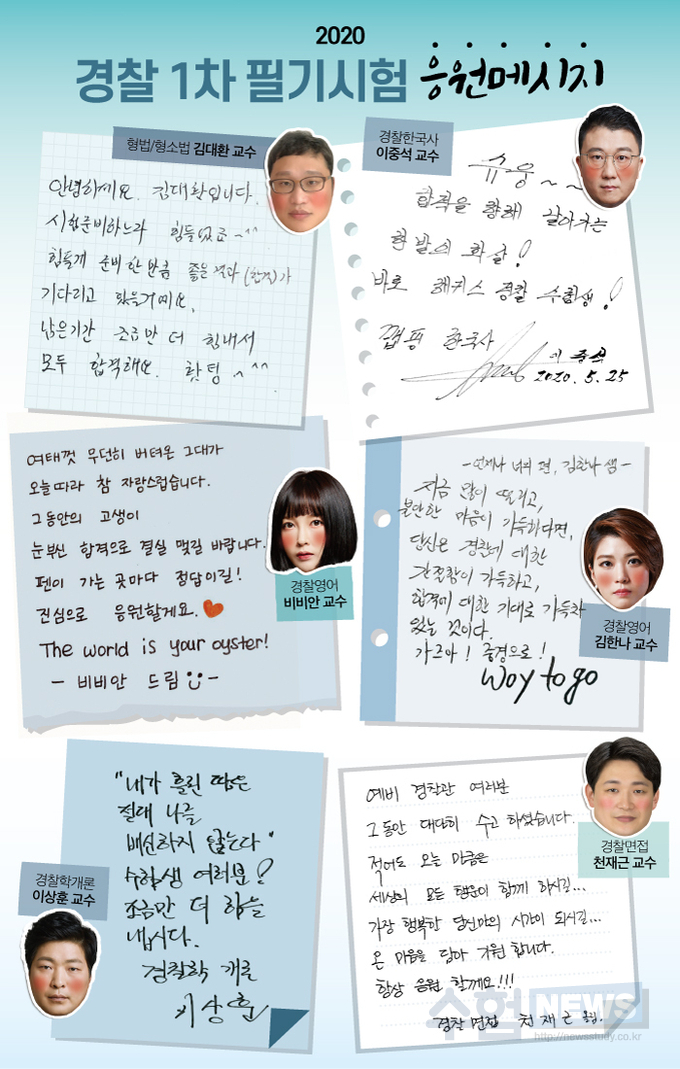 2020
경찰 1차 필기시험 응원메시지
형법/형소법 김대환 교수
안녕하세요. 김대환입니다.
시험준비하느라 힘들었죠~^^
힘들게 준비한만큼 좋은 결과(합격)가
기다리고 있을거예요.
남은기간 조금만 더 힘내서
모두 합격해요. 홧팅~^^
경찰한국사
이중석 교수
슈웅~~
합격을 향해 날아가는
한 발의 화살!
바로 해커스 경찰 수험생!
껌핑 한국사
이중석
2020. 5. 25
여태껏 무던히 버텨온 그대가
오늘따라 참 자랑스럽습니다.
그동안의 고생이
눈부신 합격으로 결실 맺길 바랍니다.
펜이 가는 곳마다 정답이길!
진심으로 응원할게요.
The world is your oyster!
- 비비안 드림 -
경찰영어
비비안 교수
- 언제나 너의 편, 김한나 쌤 -
지금 많이 떨리고,
불안한 마음이 가득하다면,
당신은 경찰에 대한
간절함이 가득하고,
합격에 대한 기대로 가득차
있는 것이다.
가즈아! 중경으로!
Way to go
경찰영어
김한나 교수
"내가 흘린 땀은
절대 나를
배신하지 않는다"
수험생 여러분!
조금만 더 힘을
냅시다.
경찰학 개론
이상훈
경찰학개론
이상훈 교수
예비 경찰관 여러분
그동안 대단히 수고 하셨습니다.
적어도 오늘 만큼은
세상의 모든 행운이 함께 하시길...
가장 행복한 당신만의 시간이 되시길...
온 마음을 담아 기원합니다.
항상 응원 할게요!!!
경찰 면접 천재근 드림.
경찰면접
천재근 교수
수험NEWS
http://newsstudy.co.kr